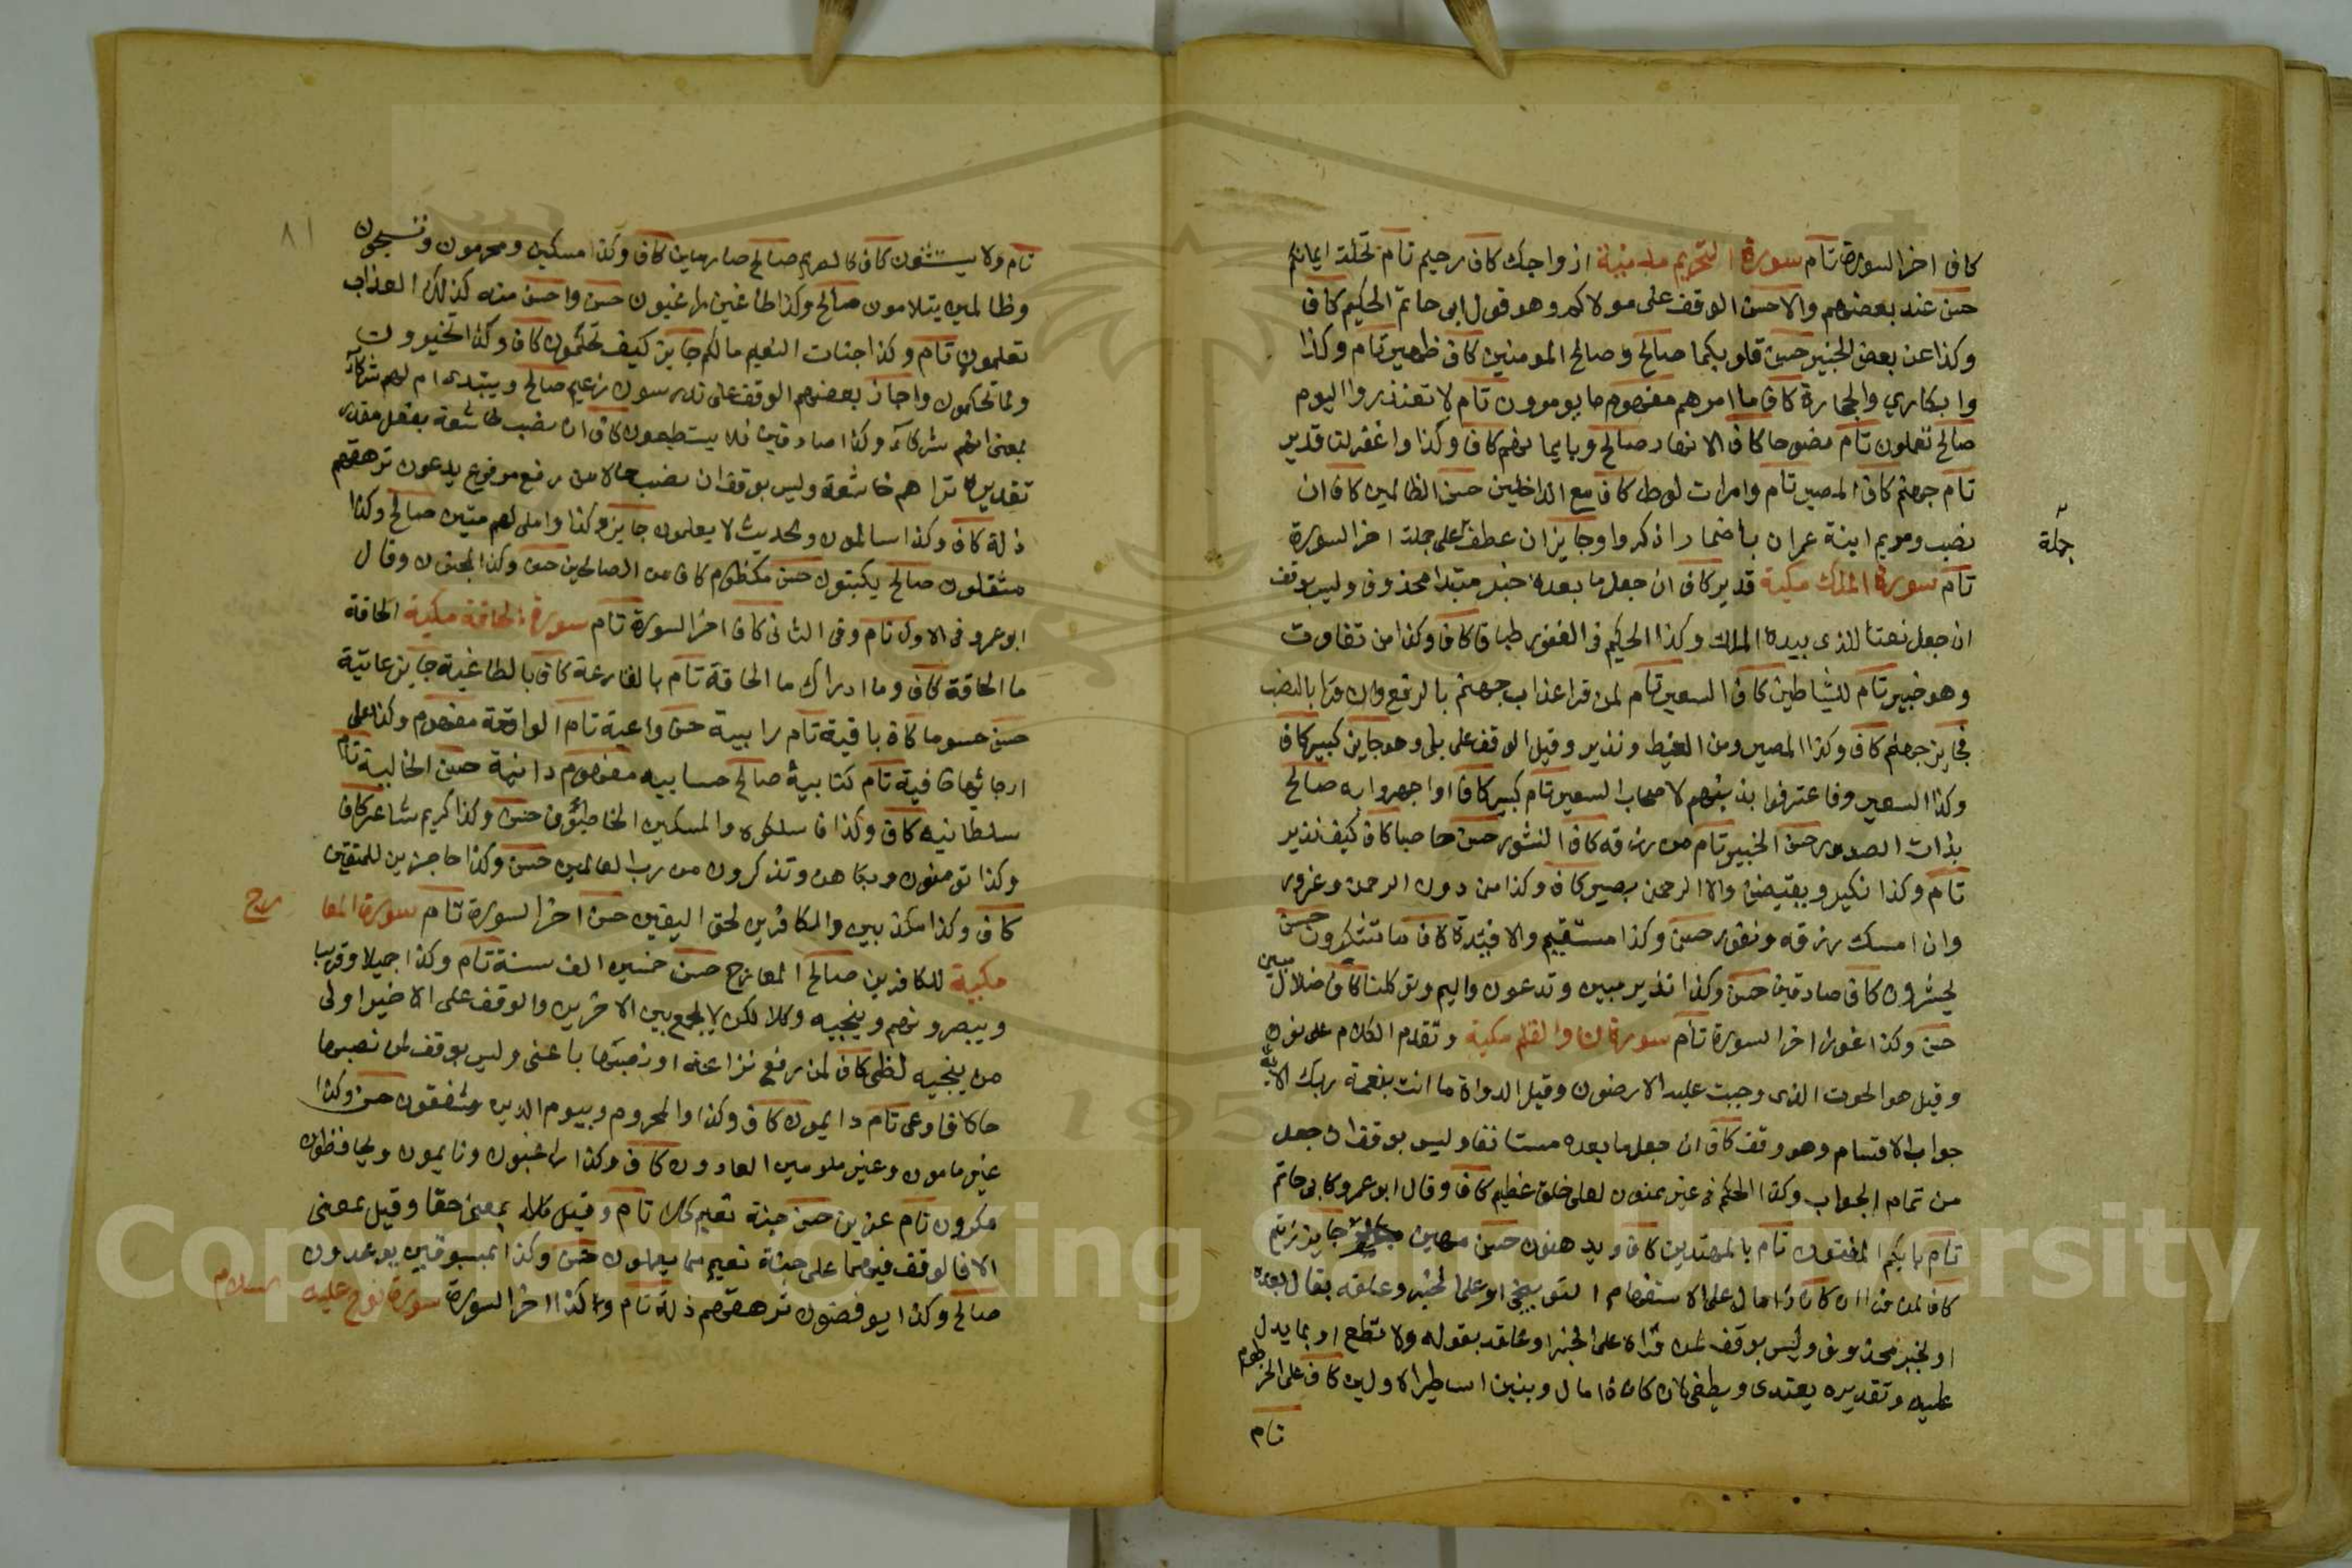 كاف اخر السورة تام سورة التحريم مدنية ازواجك كاف رحيم تام تحلة ايمانكم
حسن عند بعضهم والاحسن الوقف على مولاكم وهو قول ابى حاتم الحكيم كاف
وكذا عن بعض الخبير حسن قلوبكما صالح وصالح المومنين كاف ظهير تام وكذا
وابكارا والحجارة كاف ما امرهم مفهوم ما يومرون تام لا تعتذروا اليوم
صالح تعملون تام نصوحا كاف الانهار صالح وبايمانهم كاف وكذا واغفر لنا قدير
تام جهنم كاف المصير تام وامرات لوط كاف مع الداخلين حسن الظالمين كاف ان
نصب ومريم ابنة عمران باضمار اذكروا وجايز ان عطف على جملة اخر السورة
جملة
تام سورة الملك مكية قدير كاف ان جعل ما بعده خبر مبتدا محذوف وليس بوقف
ان جعل نعتا للذى بيده الملك وكذا الحكيم فى الغفور طباقا كاف وكذا من تفاوت
وهو خبير تام للشياطين كاف السعير تام لمن قرا عذاب جهنم بالرفع وان قرا بالنصب
فجايز جهنم كاف وكذا المصير ومن الغيظ ونذير وقيل الوقف على بلى وهو جايز كبير كاف
وكذا السعير وفاعترفوا بذنبهم لاصحاب السعير تام كبير كاف او اجهروا به صالح
بذات الصدور حسن الخبير تام من رزقه كاف النشور حسن حاصبا كاف كيف نذير
تام وكذا نكير ويقبضن والا الرحمن بصير كاف وكذا من دون الرحمن وغرور
وان امسك رزقه ونفور حسن وكذا مستقيم والافيدة كاف ما تشكرون حسن
يحشرون كاف صادقين حسن وكذا نذير مبين وتدعون واليم وتوكلنا كاف ضلال مبين
حسن وكذا غورا اخر السورة تام سورة ن والقلم مكية وتقدم الكلام على نون
وقيل هو الحوت الذى دحيت عليه الارضون وقيل الدواة ما انت بنعمة ربك الاية
جواب الاقسام وهو وقف كاف ان جعل ما بعده مستانفا وليس بوقف ان جعل
من تمام الجواب وكذا الحكم فى غير ممنون لعلى خلق عظيم كاف وقال ابو عمرو كابى حاتم
تام بايكم المفتون تام بالمهتدين كاف ويدهنون حسن مهين جايز زنيم
كاف لمن قرا ان كان ذا مال على الاستفهام التوبيخى او على الخبر وعلقه بقال بعده
او بخبر محذوف وليس بوقف لمن قراه على الخبر او علقه بقوله ولا تطع او بما يدل
عليه وتقديره يعتدى ويطغى لان كان ذا مال وبنين اساطير الاولين كاف على الخرطوم
تام
٨١
تام ولا يستثنون كاف كالصريم صالح صارمين كاف وكذا مسكين ومحرمون وتسبحون
وظالمين يتلاومون صالح وكذا طاغين راغبون حسن واحسن منه كذلك العذاب
تعلمون تام وكذا جنات النعيم مالكم جايز كيف تحكمون كاف وكذا تخيرون
ولما تحكمون واجاز بعضهم الوقف على تدرسون زعيم صالح ويبتدى ام لهم شركاء
بمعنى الهم شركاء وكذا صادقين فلا يستطيعون كاف ان نصب خاشعة بفعل مقدر
تقديره تراهم خاشعة وليس بوقف ان نصب حالا من رفع مرفوع يدعون ترهقهم
ذلة كاف وكذا سالمون والحديث لا يعلمون جايز وكذا واملى لهم متين صالح وكذا
مثقلون صالح يكتبون حسن مكظوم كاف من الصالحين حسن وكذا لمجنون وقال
ابو عمرو فى الاول تام وفى الثانى كاف اخر السورة تام سورة الحاقة مكية الحاقة
ما الحاقة كاف وما ادراك ما الحاقة تام بالقارعة كاف بالطاغية جايز عاتية
حسن حسوما كاف باقية تام رابية حسن واعية تام الواقعة مفهوم وكذا على
ارجائها خافية تام كتابية صالح حسابيه مفهوم دانية حسن الخالية تام
سلطانيه كاف وكذا فاسلكوه والمسكين الخاطئون حسن وكذا كريم شاعر كاف
وكذا تومنون وبكاهن وتذكرون من رب العالمين حسن وكذا حاجزين للمتقين
كاف وكذا مكذبين والكافرين لحق اليقين حسن اخر السورة تام سورة المعارج
مكية للكافرين صالح المعارج حسن خمسين الف سنة تام وكذا جميلا وقريبا
ويبصرونهم وينجيه وكلا لكن لا يجمع بين الاخرين والوقف على الاخير اولى
من ينجيه لظى كاف لمن رفع نزاعة او نصبها باعنى وليس بوقف لمن نصبها
حالا فاوعى تام دايمون كاف وكذا والمحروم وبيوم الدين مشفقون حسن وكذا
غير مامون وغير ملومين العادون كاف وكذا راعون وقايمون ويحافظون
مكرمون تام عزين حسن جنة نعيم كلا تام وقيل كلا بمعنى حقا وقيل بمعنى
الا فالوقف فيهما على جنة نعيم مما يعلمون حسن وكذا بمسبوقين يوعدون
صالح وكذا يوفضون ترهقهم ذلة تام وكذا اخر السورة سورة نوح عليه السلام